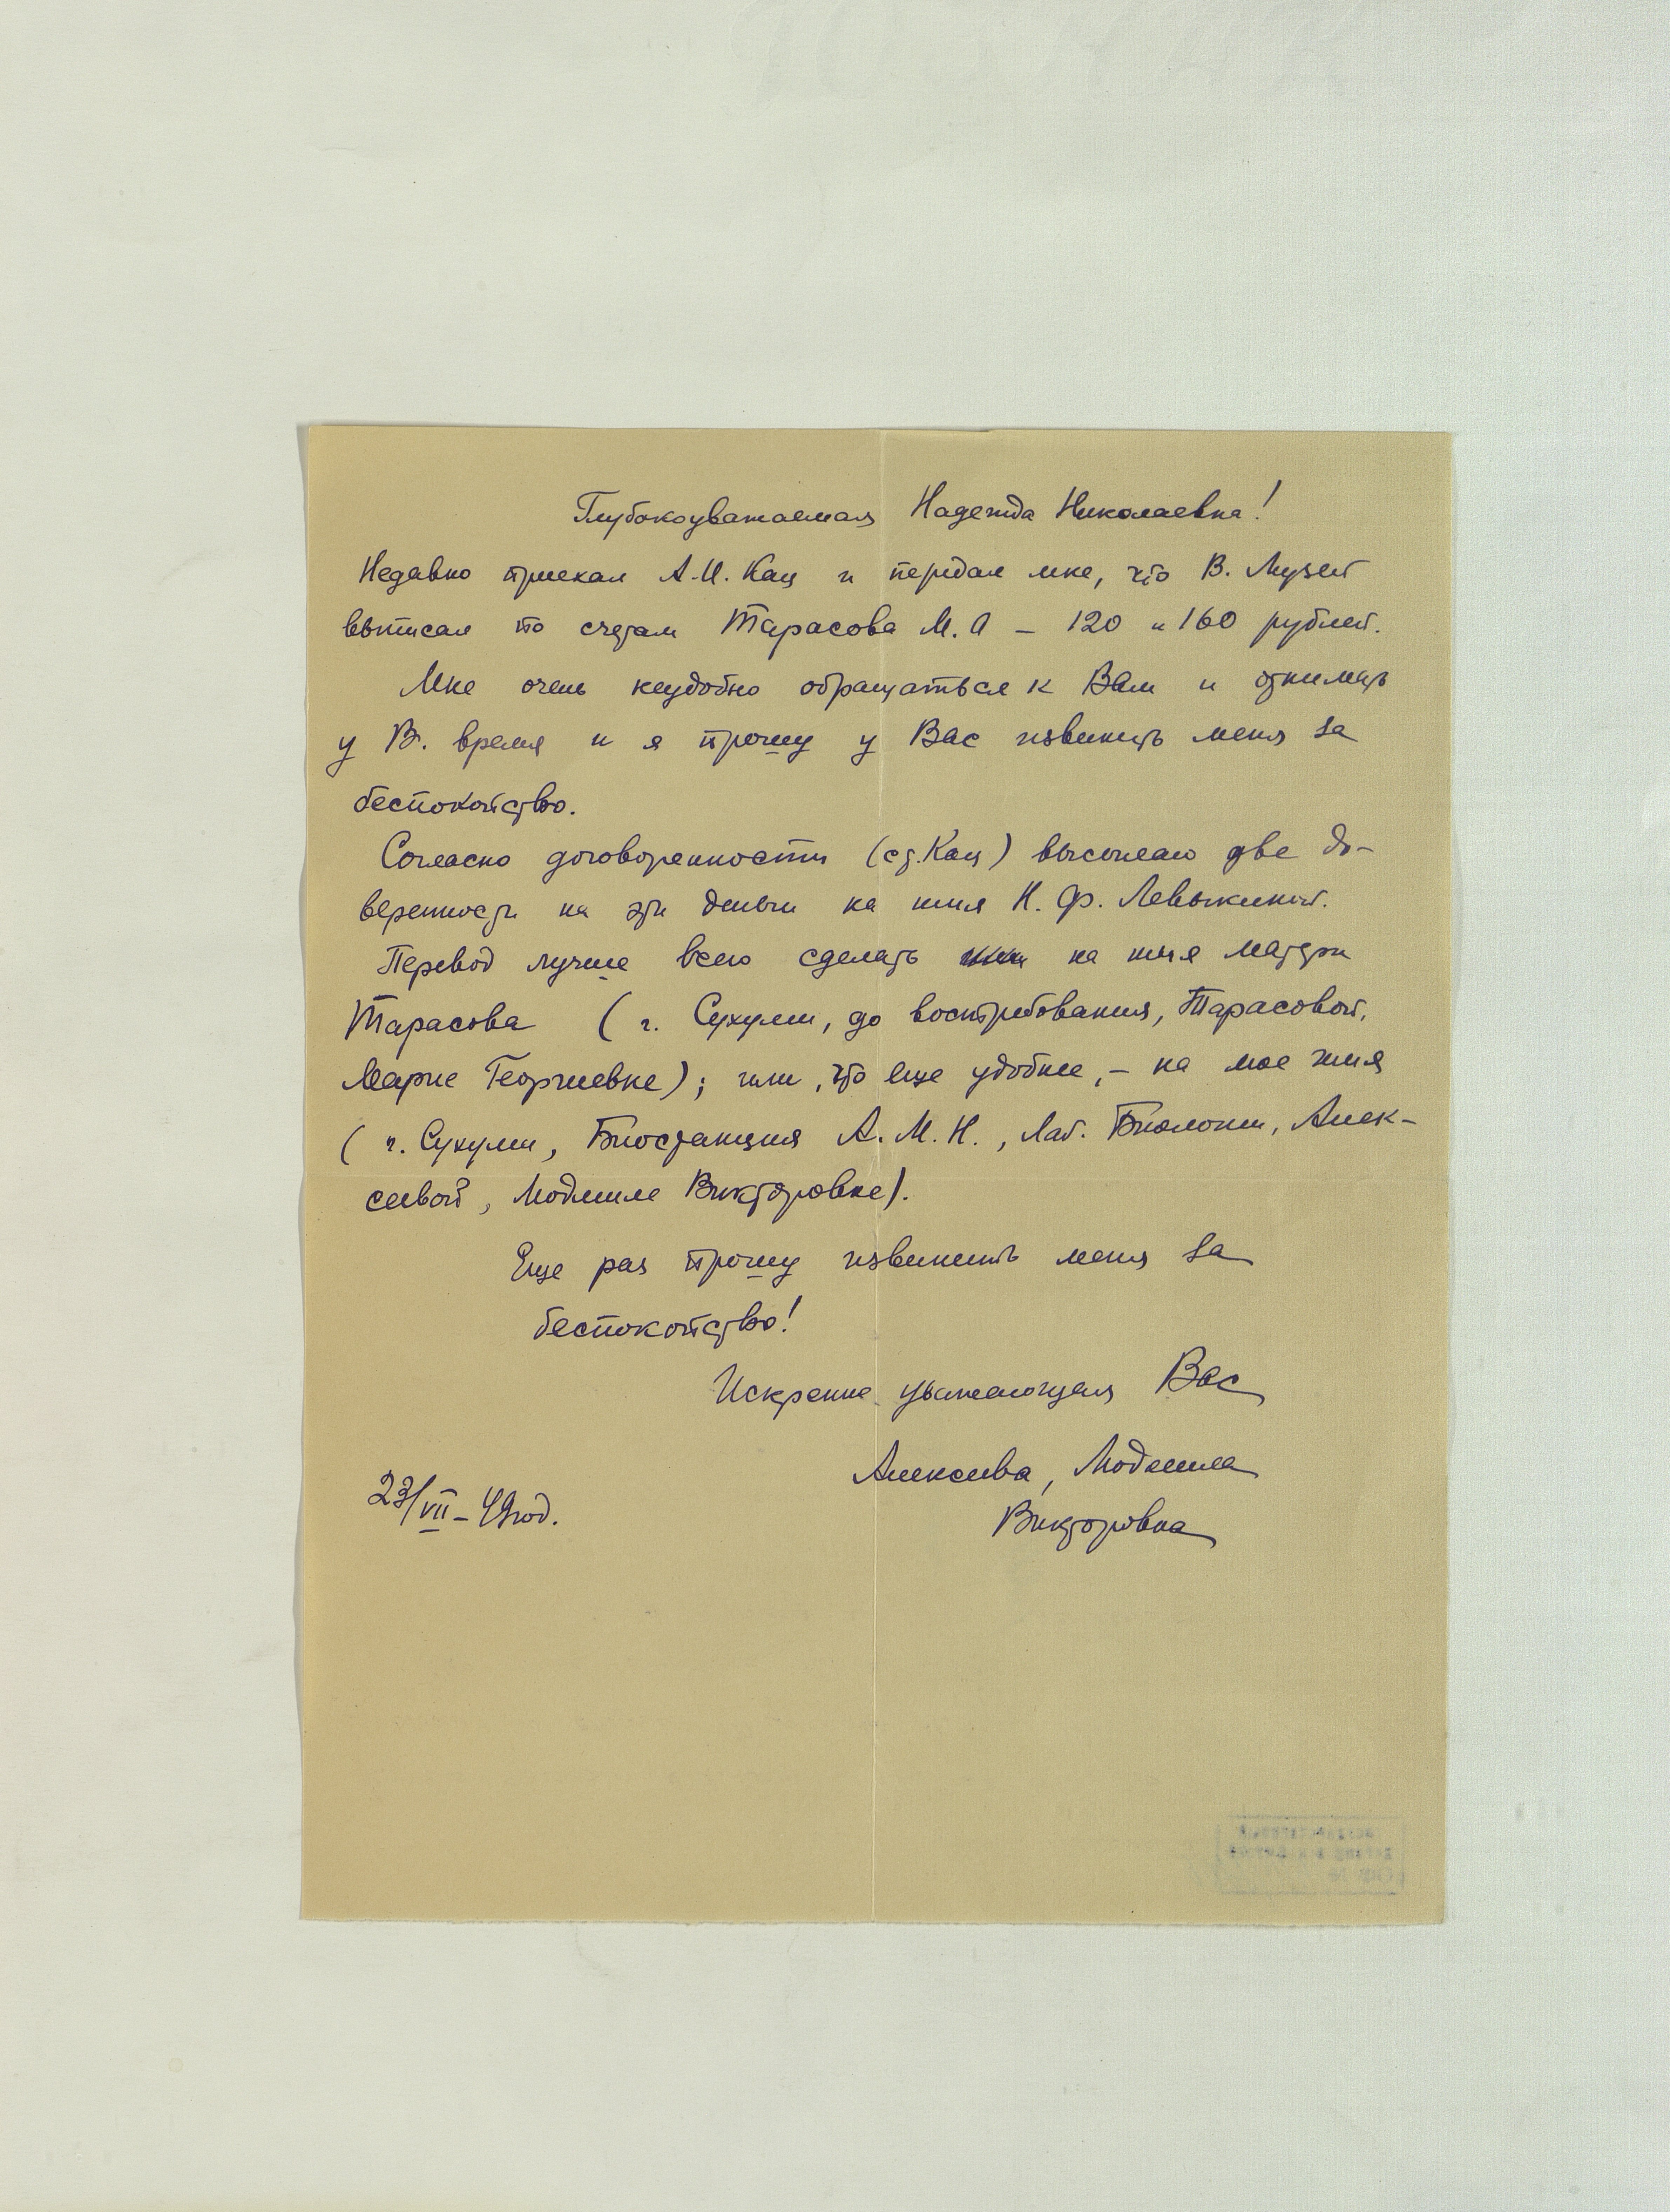 Глубокоуважаемая Надежда Николаевна!
Недавно приехал А.И. Кац и передал мне, что В. Музей
выписал по счетам Тарасова М.А – 120 и 160 рублей.
Мне очень неудобно обращаться к Вам и отнимать
у В. время и я прошу у Вас извинить меня за
беспокойство.
Согласно договоренности (с т. Кац) высылаю две до-
веренности на эти деньги на имя Н. Ф. Левыкиной.
Перевод лучше всего сделать на имя матери
Тарасова ( г. Сухуми, до востребования, Тарасовой,
Марие Георгиевне); или, что еще удобнее, – на мое имя
( г. Сухуми, Биостанция А. М. Н., Лаб. Биологии, Алек-
сеевой, Людмиле Викторовне).
Еще раз прошу извинить меня за
беспокойство!
Искренне уважающая Вас
Алексеева, Людмила
Викторовна
23/VII – 49год.